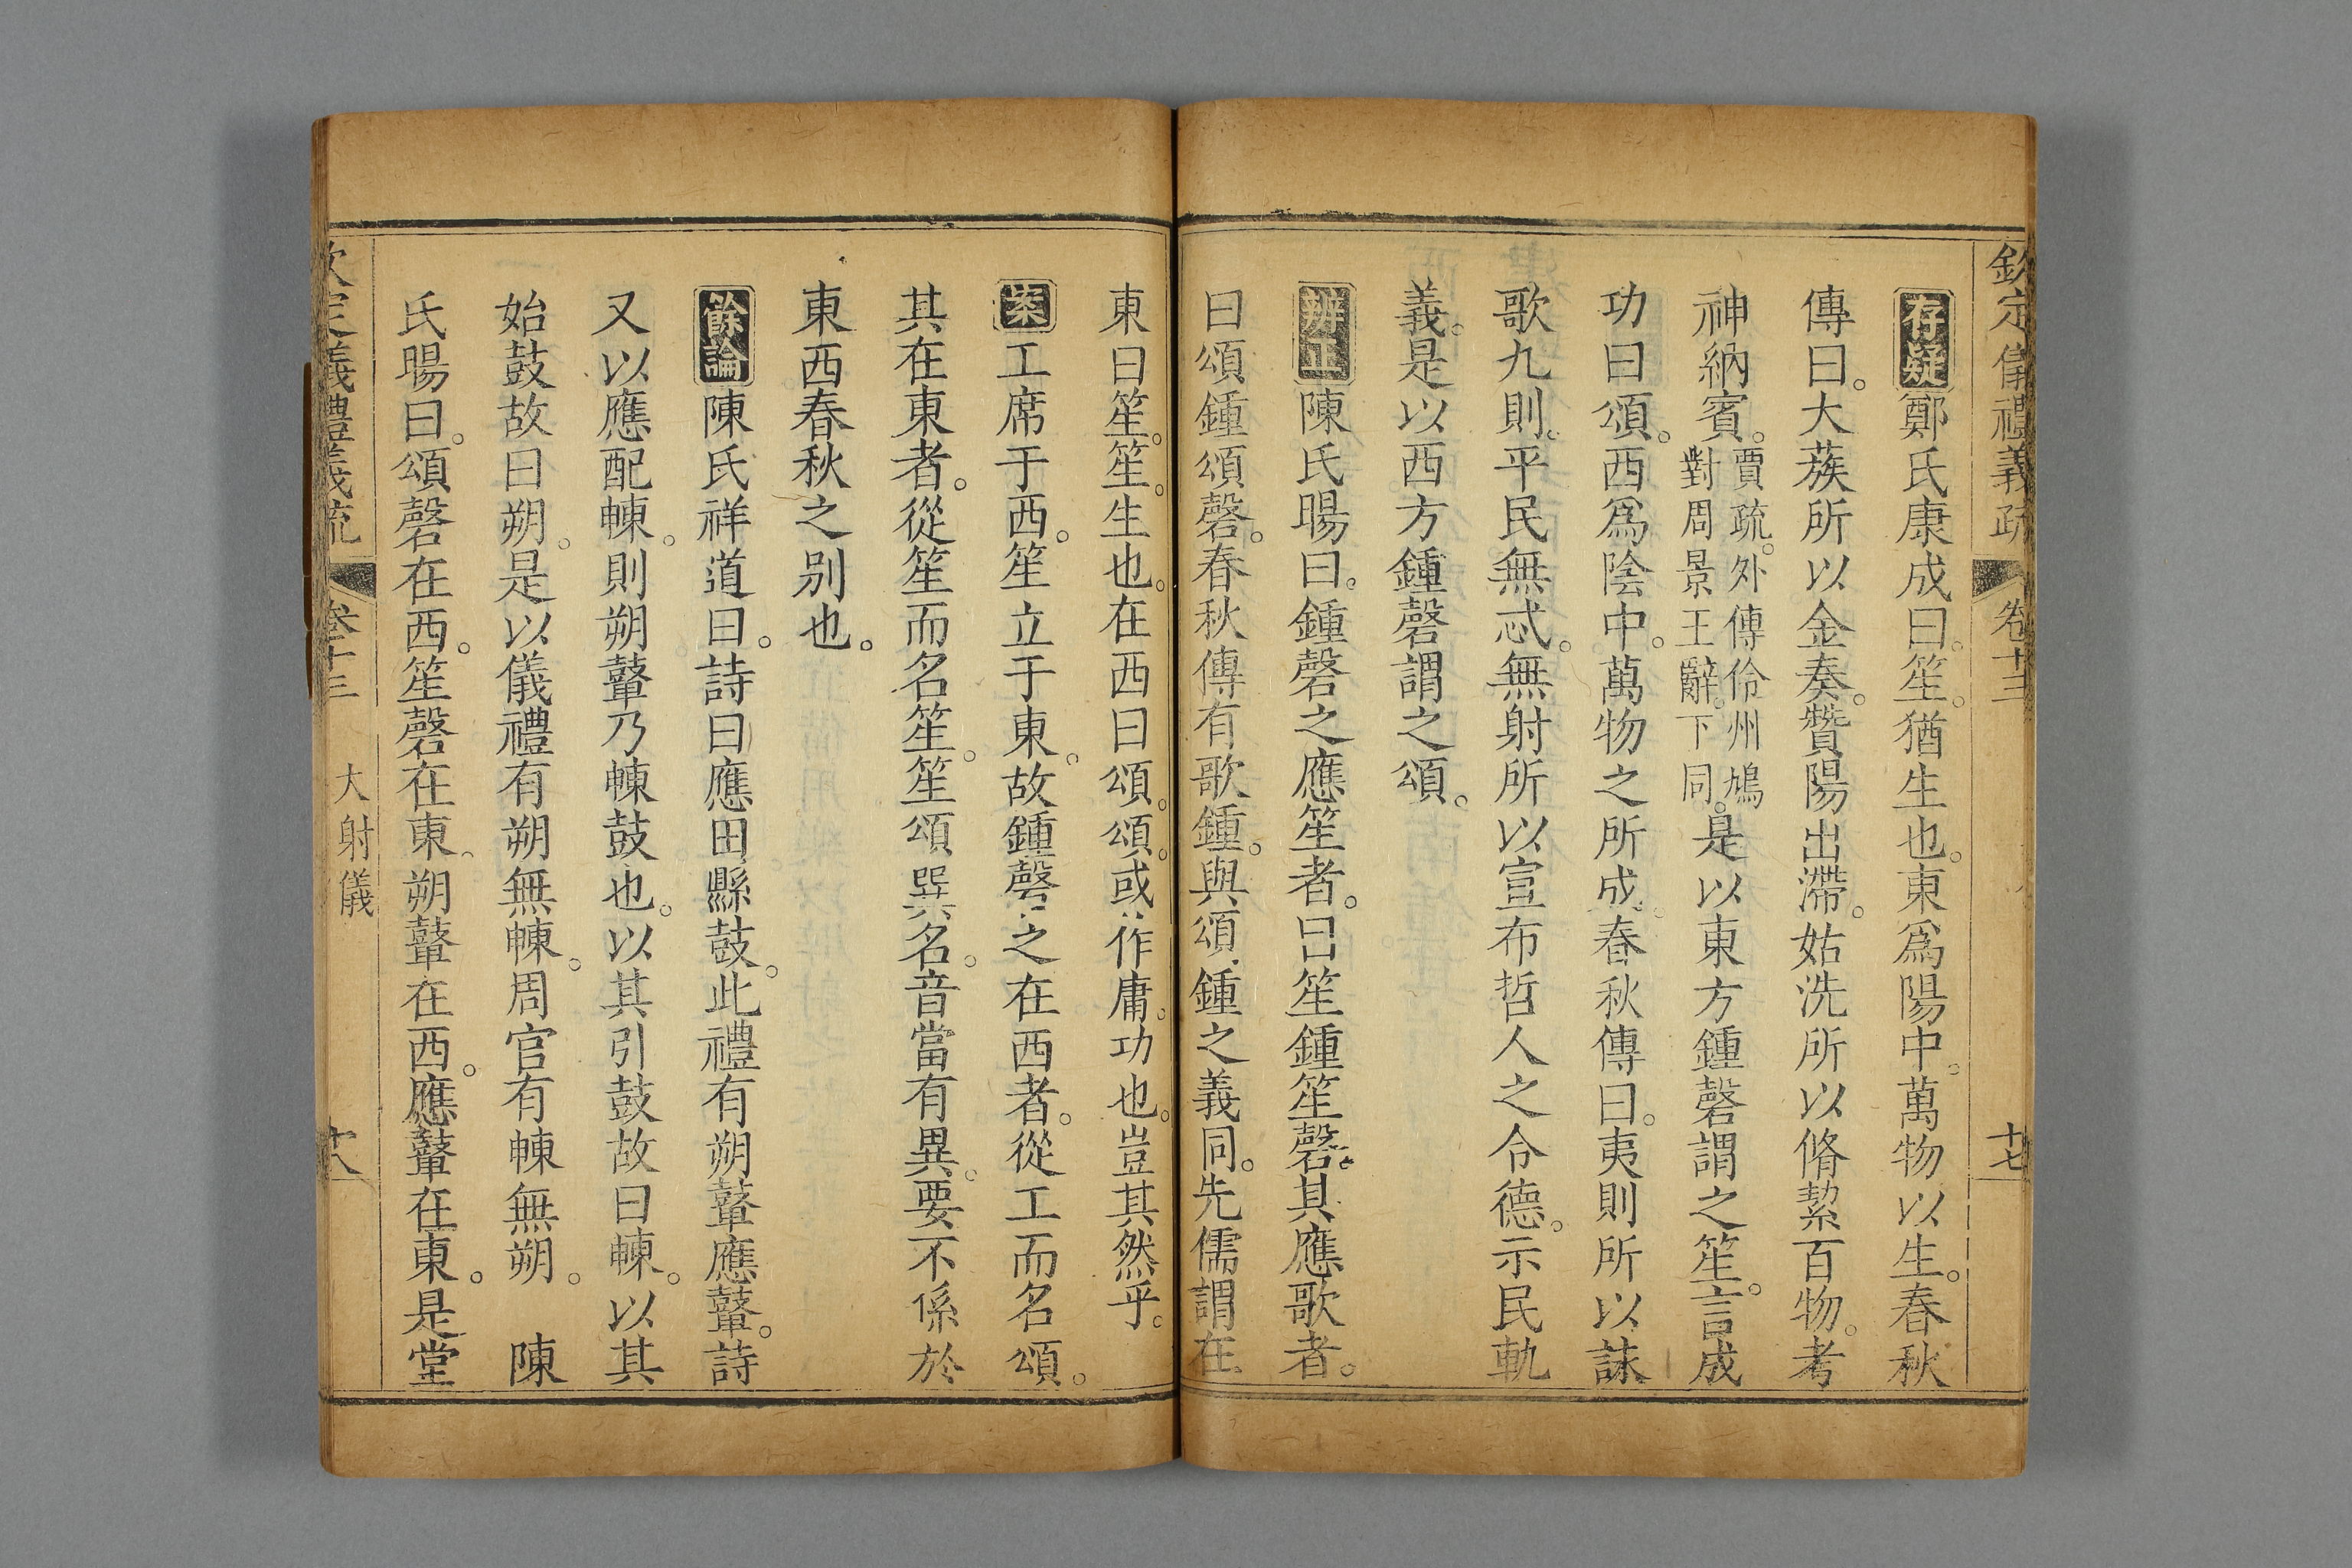 欽定儀禮義疏 卷十三 十七
存疑鄭氏康成曰。笙。猶生也。東爲陽中。萬物以生。春秋
傳曰。大蔟所以金奏。贊陽出滯。姑洗所以脩絜百物。考
神納賓。賈疏。外傳伶州鳩對周景王辭。下同。是以東方鍾磬謂之笙。言成
功曰頌。西爲陰中。萬物之所成。春秋傳曰。夷則所以詠
歌九則。平民無忒。無射所以宣布哲人之令德。示民軌
義。是以西方鍾磬謂之頌。
辨正陳氏暘曰。鍾磬之應笙者。曰笙鍾笙磬。其應歌者。
曰頌鍾頌磬。春秋傳有歌鍾。與頌鍾之義同。先儒謂在
東曰笙。笙。生也。在西曰頌。頌。或作庸。功也。豈其然乎。
案工席于西。笙立于東。故鍾磬之在西者。從工而名頌。
其在東者。從笙而名笙。笙頌異名。音當有異。要不係於
東西春秋之别也。
餘論陳氏祥道曰。詩曰應田縣鼓。此禮有朔鼙應鼙。詩
又以應配朄。則朔鼙乃朄鼓也。以其引鼓故曰朄。以其
始鼓故曰朔。是以儀禮有朔無朄。周官有朄無朔。 陳
氏暘曰。頌磬在西。笙磬在東。朔鼙在西。應鼙在東。是堂
欽定義禮義疏 卷十三 大射儀 十八